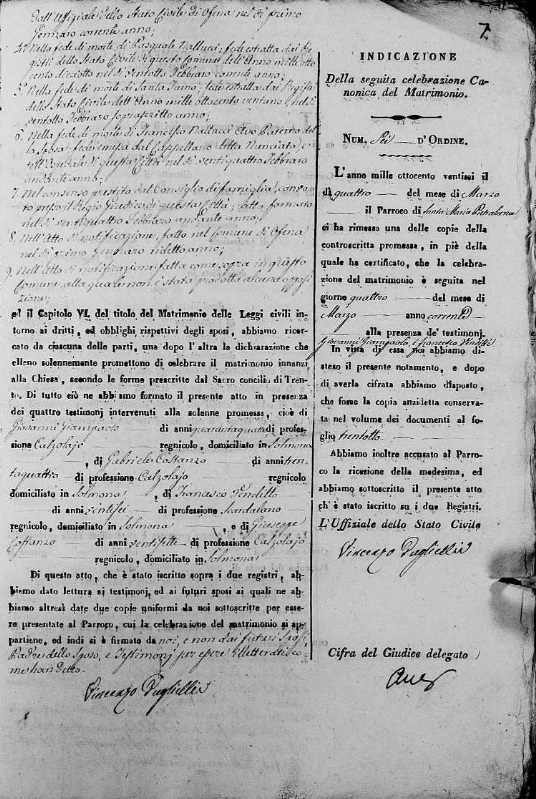 dall'Uffiziale dello Stato Civile di Ofena nel dì primo
Gennaro corrente anno;
4. Nella fede di morte di Pasquale Vallucci, fede estratta dai Re
gistri dello Stato Civile di questo Comune dell'Anno mille otto
cento diciotto nel dì ventotto Febbraro corrente anno;
5. Nella fede di morte di Santa
dello Stato Civile dell'Anno mille ottocento ventuno nel dì
ventotto Febbraro sopradetto anno;
6. Nella fede di morte di Francesco Vallucci Avo Paterno del
la Sposa, fede emessa dal Cappellano della Nunciata
di questa Città nel dì ventiquattro Febbraro
andante anno;
7. Nel consenso prestato dal Consiglio di famiglia,
presso il Regio Giudice di questa Città, atto formato
nel dì ventiquattro Febbraro andante anno;
8. Nell'Atto di notificazione, fatto nel Comune di Ofena
nel dì primo Gennaro indetto anno;
9. Nell'Atto di notificazione fatta come sopra in questo
Comune, alla quale non è stata prodotta alcuna opposi
zione;
ed il Capitolo VI. del titolo del Matrimonio delle Leggi civili in-
torno ai dritti, ed obblighi rispettivi degli sposi, abbiamo ricer-
cato da ciascuna delle parti, una dopo l'altra la dichiarazione che
elleno solennemente promettono di celebrare il matrimonio innanzi
alla Chiesa, secondo le forme prescritte dal Sacro concilio di Tren-
to. Di tutto ciò ne abbiamo formato il presente atto in presenza
dei quattro testimonj intervenuti alla solenne promessa, cioè di
Giovanni Giampaolo di anni quarantaquattro di profes-
sione Calzolajo regnicolo, domiciliato in Solmona
, di Gabriele Costanzo di anni tren
taquattro di professione Calzolajo regnicolo
domiciliato in Solmona, di Francesco Pendillo
di anni ventisei di professione Scardalano
regnicolo, domiciliato in Solmona e di Giuseppe
Costanzo di anni ventisette di professione Calzolajo
regnicolo, domiciliato in Solmona
Di questo atto, che è stato iscritto sopra i due registri, ab-
biamo dato lettura ai testimonj, ed ai futuri sposi ai quali ne ab-
biamo altresì date due copie uniformi da noi sottoscritte per esse-
re presentate al Parroco, cui la celebrazione del matrimonio si ap-
partiene, ed indi si è firmato da noi, e non dai futuri Sposi,
Padre dello Sposo, e Testimonj per essere illetterati co
me han detto.
Vincenzo Puglielli
7.
INDICAZIONE
Della seguita celebrazione Ca-
nonica del Matrimonio.
NUM. Sei D'ORDINE.
L'anno mille ottocento ventisei il
dì quattro del mese di Marzo
il Parroco di Santa Maria
ci ha rimessa una delle copie della
controscritta promessa, in piè della
quale ha certificato, che la celebra-
zione del matrimonio è seguita nel
giorno quattro del mese di
Marzo anno corrente
alla presenza de' testimonj.
Giovanni Giampaolo, e Francesco Pendillo
In vista di essa noi abbiamo di-
steso il presente notamento, e dopo
di averla cifrata abbiamo disposto,
che fosse la copia anzidetta conserva-
ta nel volume dei documenti al fo-
glio trentotto.
Abbiamo inoltre accusato al Parro-
co la ricezione della medesima, ed
abbiamo sottoscritto il presente atto
ch'è stato iscritto su i due Registri.
L'Uffiziale dello Stato Civile
Vincenzo Puglielli
Cifra del Giudice delegato